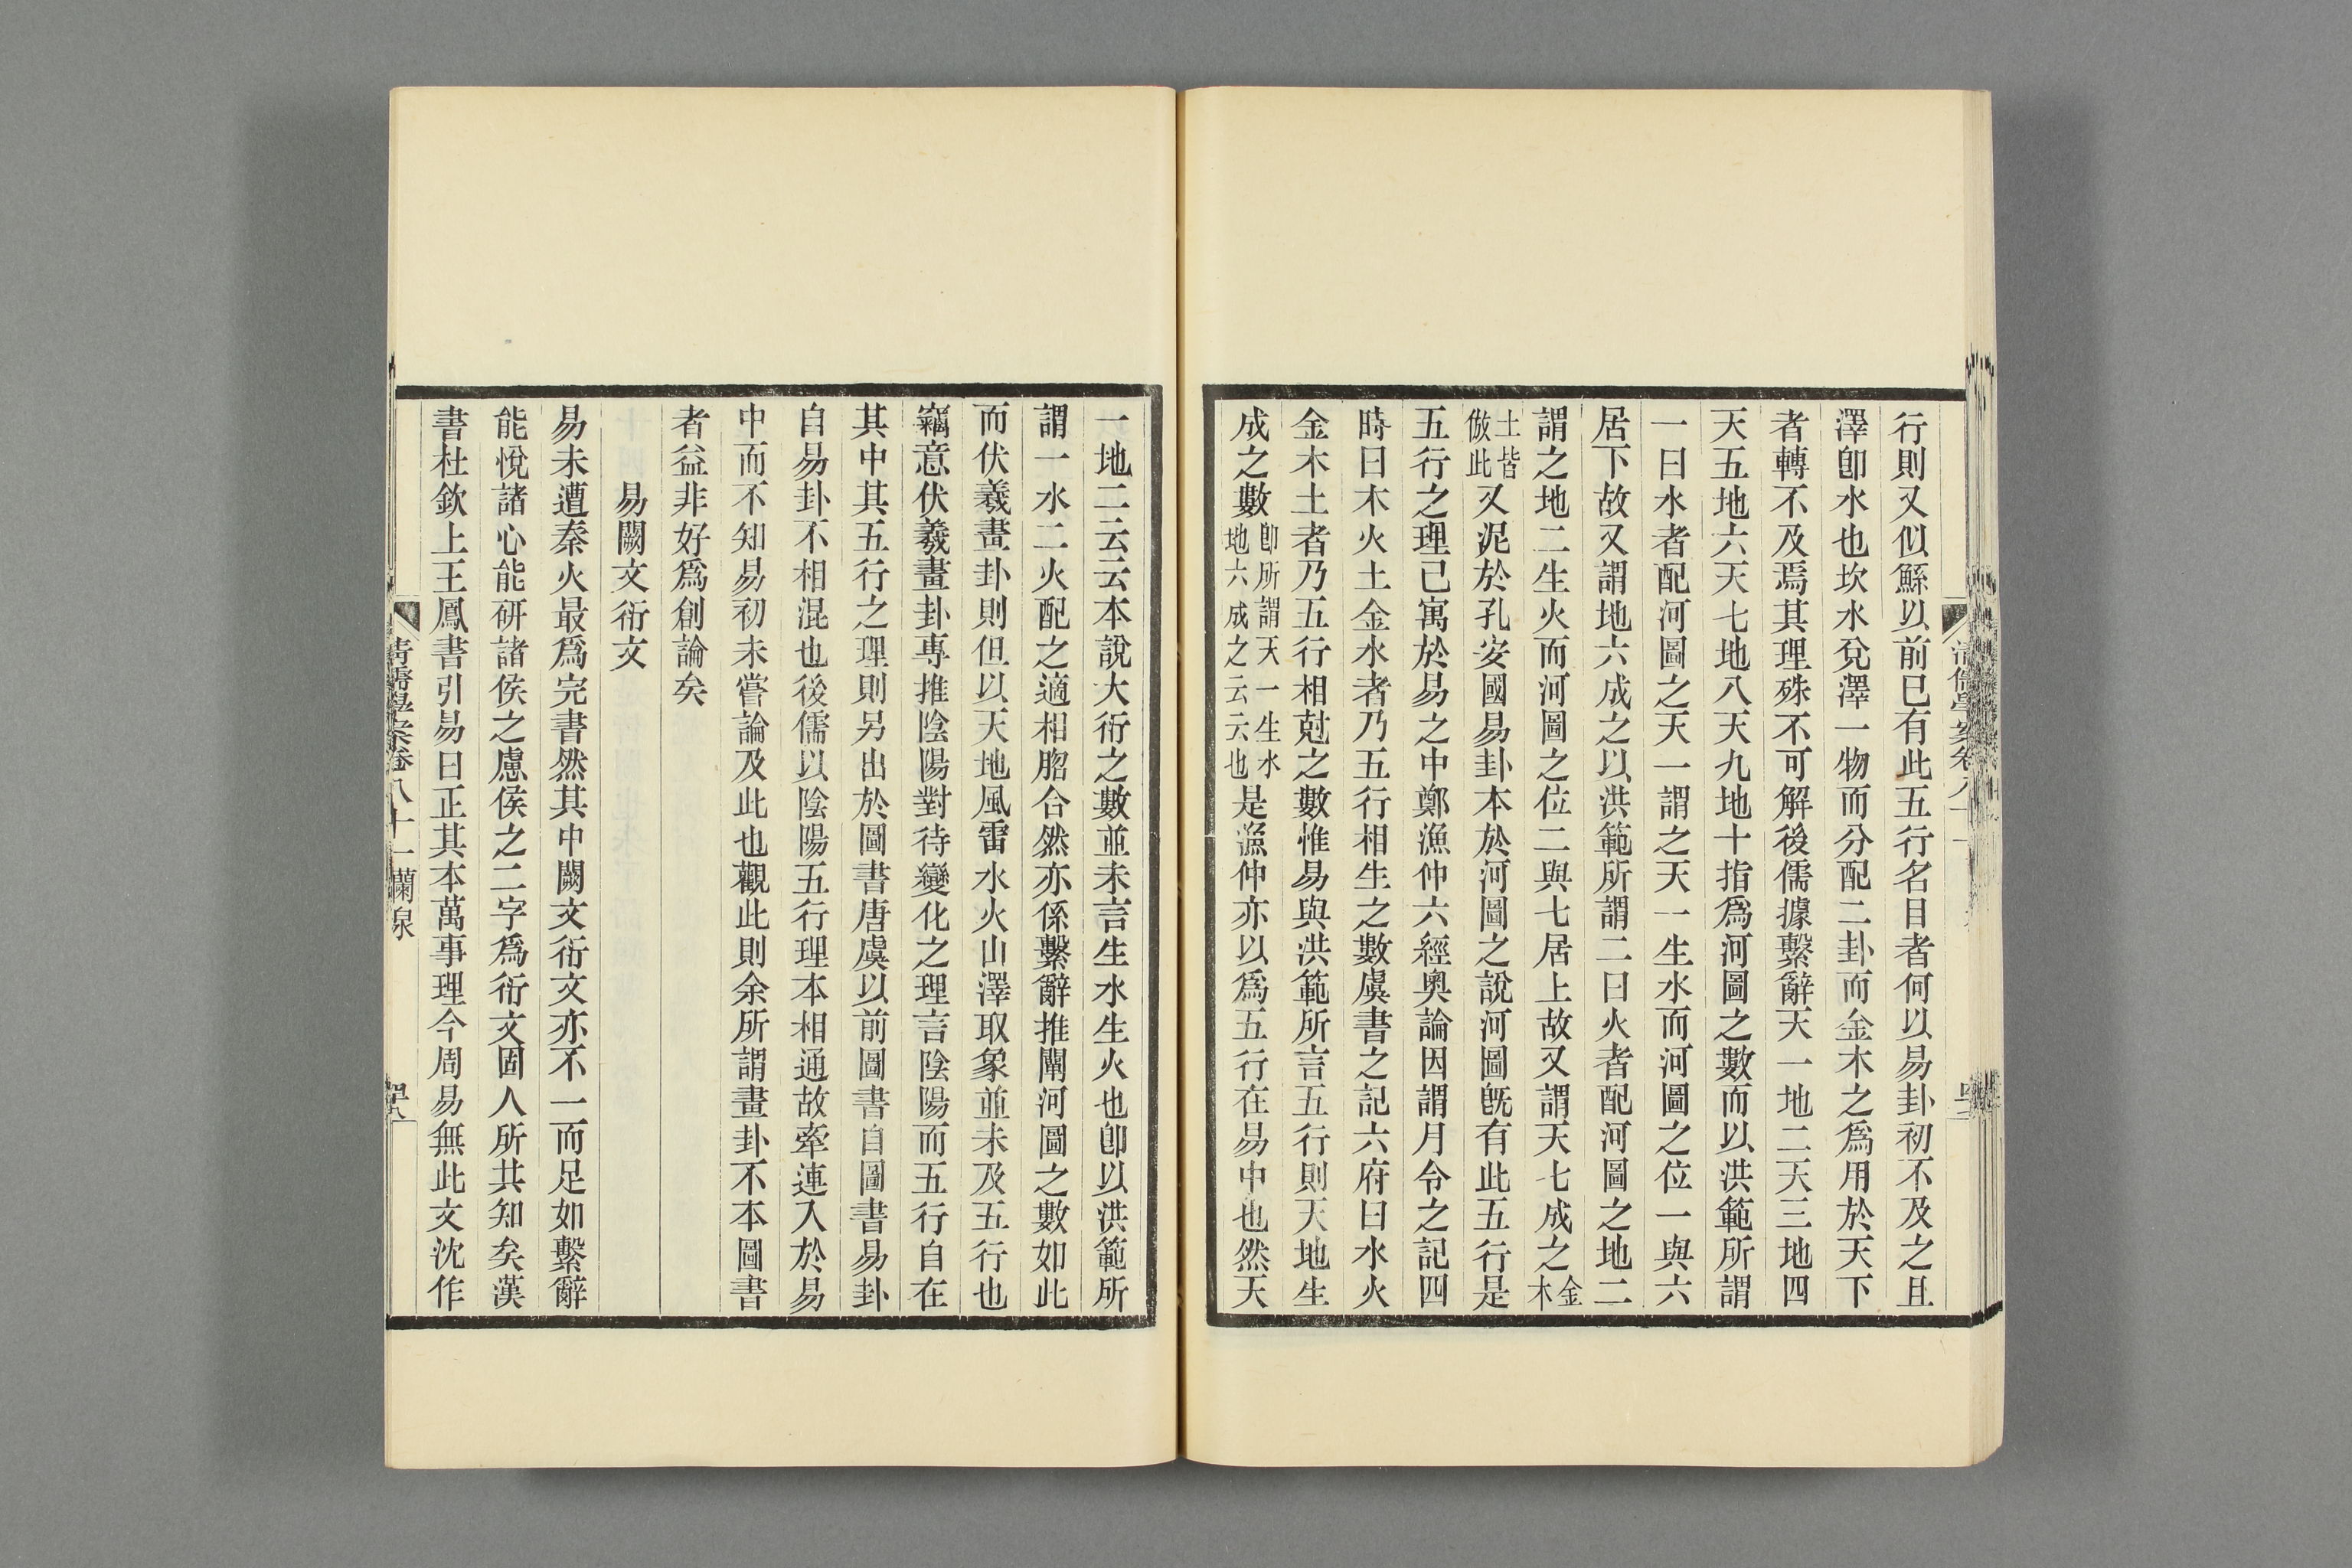 行則又似鯀以前已有此五行名目者何以易卦初不及之且
澤卽水也坎水兌澤一物而分配二卦而金木之爲用於天下
者轉不及焉其理殊不可解後儒據繫辭天一地二天三地四
天五地六天七地八天九地十指爲河圖之數而以洪範所謂
一曰水者配河圖之天一謂之天一生水而河圖之位一與六
居下故又謂地六成之以洪範所謂二曰火者配河圖之地二
謂之地二生火而河圖之位二與七居上故又謂天七成之金木
土皆倣此又泥於孔安國易卦本於河圖之說河圖旣有此五行是
五行之理已寓於易之中鄭漁仲六經奧論因謂月令之記四
時曰木火土金水者乃五行相生之數虞書之記六府曰水火
金木土者乃五行相尅之數惟易與洪範所言五行則天地生
成之數卽所謂天一生水地六成之云云也是漁仲亦以爲五行在易中也然天
一地二云云本說大衍之數並未言生水生火也卽以洪範所
謂一水二火配之適相脗合然亦係繫辭推闡河圖之數如此
而伏羲畫卦則但以天地風雷水火山澤取象並未及五行也
竊意伏羲畫卦專推陰陽對待變化之理言陰陽而五行自在
其中其五行之理則另出於圖書唐虞以前圖書自圖書易卦
自易卦不相混也後儒以陰陽五行理本相通故牽連入於易
中而不知易初未嘗論及此也觀此則余所謂畫卦不本圖書
者益非好爲創論矣
易闕文衍文
易未遭秦火最爲完書然其中闕文衍文亦不一而足如繫辭
能悅諸心能研諸侯之慮侯之二字爲衍文固人所共知矣漢
書杜欽上王鳳書引易曰正其本萬事理今周易無此文沈作
清儒學案卷八十一 蘭泉